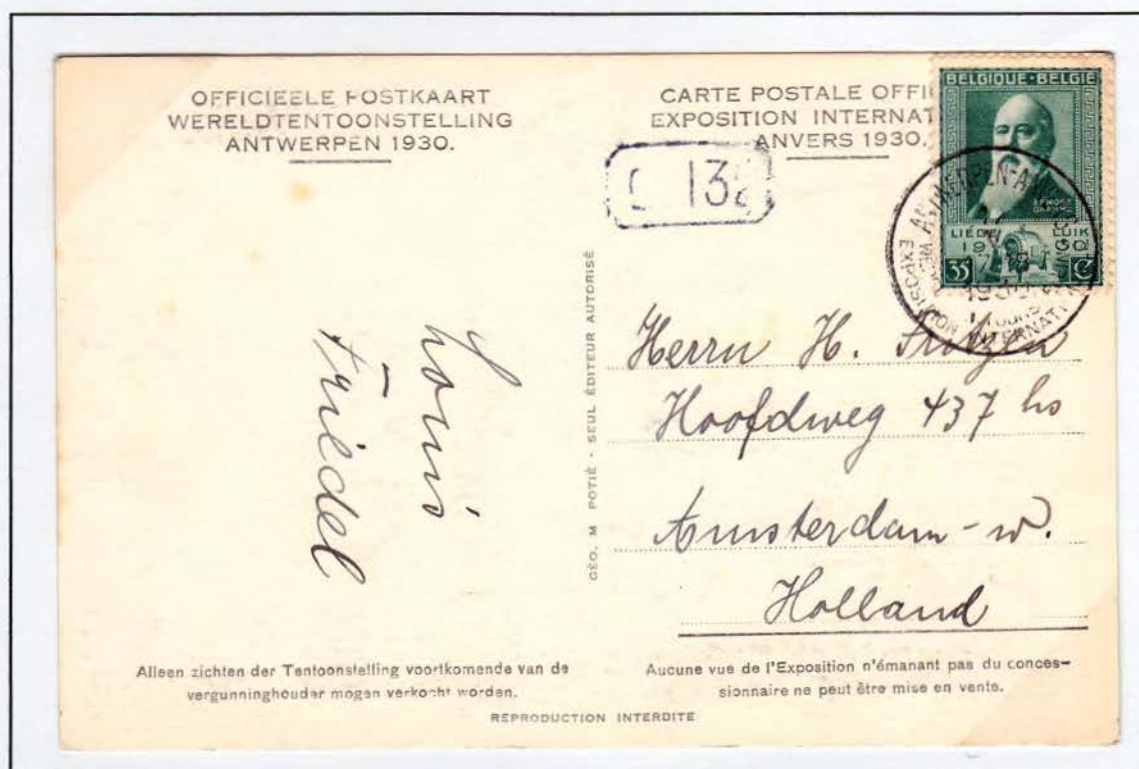 OFFICIEELE POSTKAART
WERELDTENTOONSTELLING
ANTWERPEN 1930.
CARTE POSTALE OFFI
EXPOSITION INTERNAT
ANVERS 1930.
132
BELGIQUE-BELGIË
LIEGE LUIK
19 0
35 C
ANTWERPEN-ANV
EXPOSITION INTERNATI
Louis
Friedel
GÉO. M POTIÉ - SEUL ÉDITEUR AUTORISÉ
Herrn H.
Hoofdweg 437 hs
Amsterdam-W.
Holland
Alleen zichten der Tentoonstelling voortkomende van de
vergunninghouder mogen verkocht worden.
Aucune vue de l'Exposition n'émanant pas du conces-
sionnaire ne peut être mise en vente.
REPRODUCTION INTERDITE